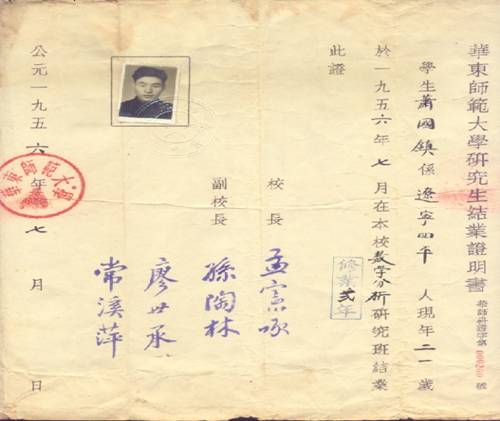 華東師範大學研究生結業證明書
華師研證字第 號
學生蕭國鎮係遼宁四平人現年二一歲
於一九五六年七月在本校數学分析研究班結業
修業弍年
此證
校長
孟憲承
副校長
孫陶林
廖世承
常溪萍
公元一九五六年七月 日
華東師範大學